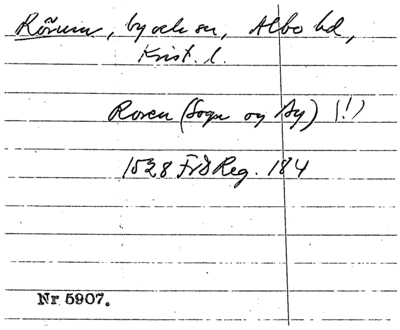 Rörum, by och sn, Albo hd,
Krist. l.
Roren (Sogn og By) (!)
1528 FrdReg. 184
Nr 5907.